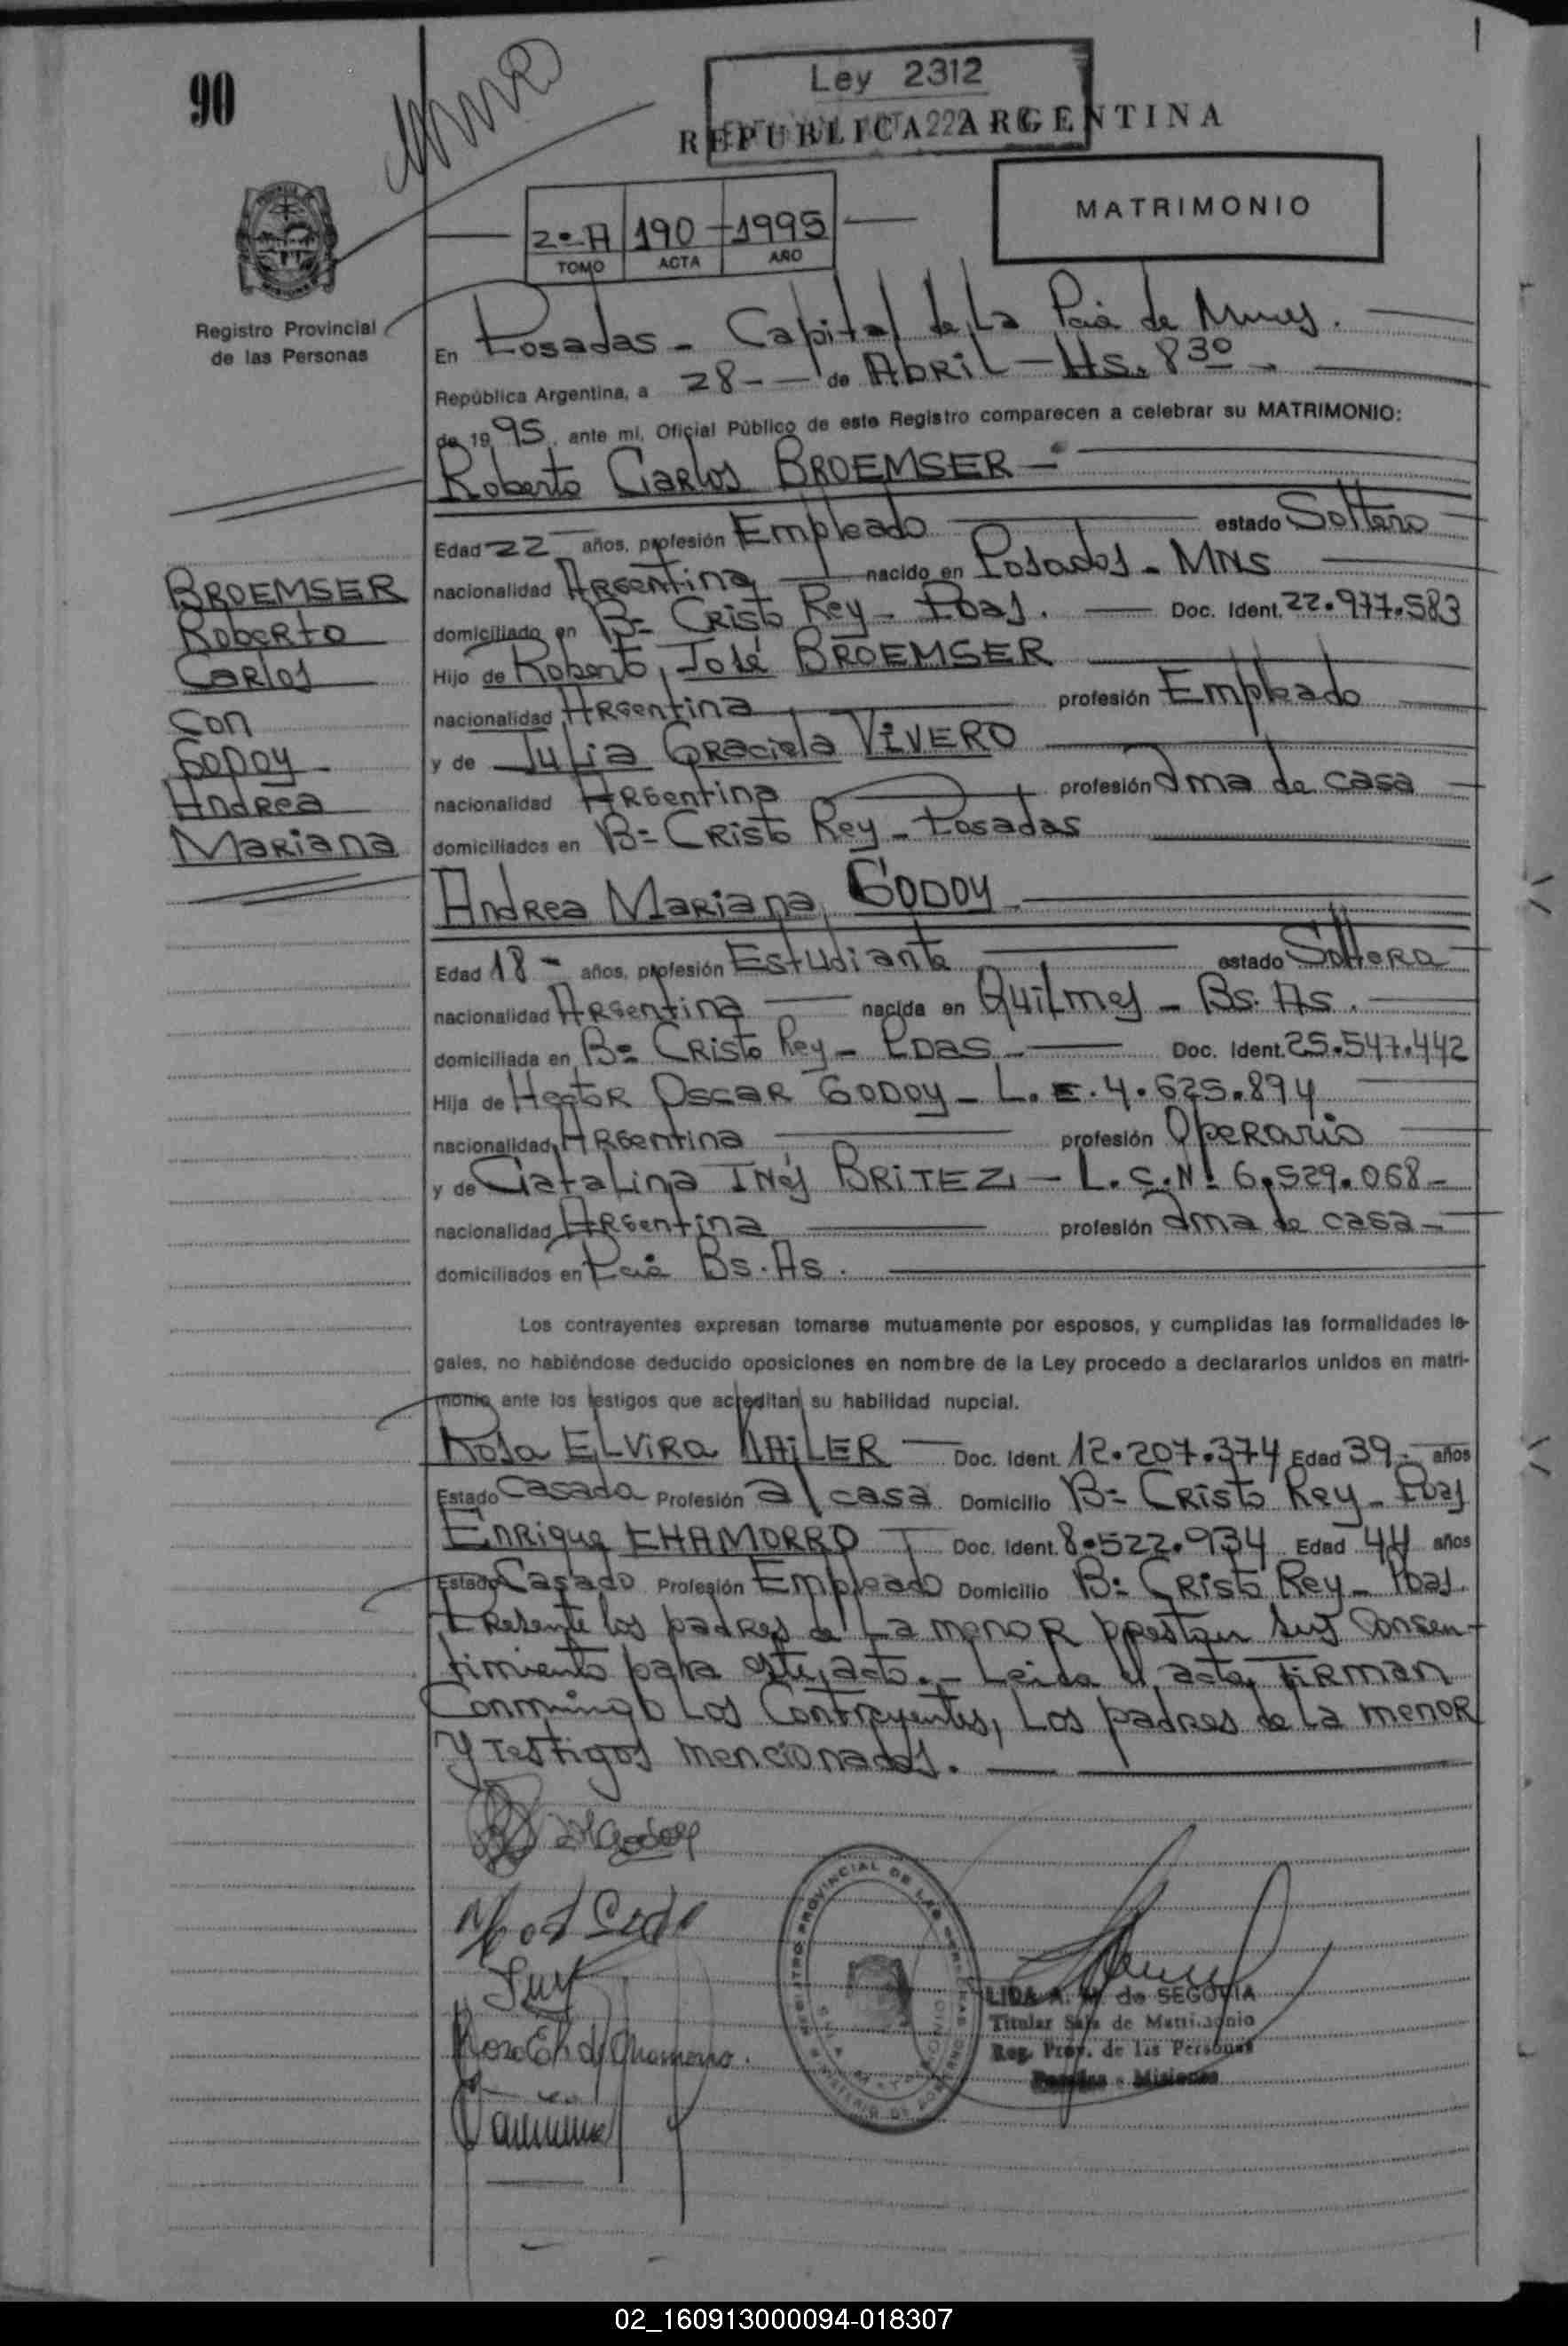 90
Ley 2312
REPUBLICA ARGENTINA
MATRIMONIO
2º A 190 - 1995
TOMO ACTA AÑO
Registro Provincial
de las Personas
En Posadas - Capital de La Pcia de Mnes.
República Argentina, a 28 - de Abril - Hs. 8 30 -
de 1995, ante mí, Oficial Público de este Registro comparecen a celebrar su MATRIMONIO:
Roberto Carlos BROEMSER -
Edad 22 años, profesión Empleado estado Soltero
nacionalidad Argentina nacido en Posadas - MNS
domiciliado en Bº Cristo Rey - Pdas. Doc. Ident. 22.977.583
Hijo de Roberto José BROEMSER
nacionalidad Argentina profesión Empleado
y de Julia Graciela VIVERO
nacionalidad Argentina profesión Ama de casa
domiciliados en Bº Cristo Rey - Posadas
BROEMSER
Roberto
Carlos
Con
GODOY
Andrea
Mariana
Andrea Mariana GODOY
Edad 18 - años, profesión Estudiante estado Soltera
nacionalidad Argentina nacida en Quilmes - Bs. As.
domiciliada en Bº Cristo Rey - Pdas - Doc. Ident. 25.547.442
Hija de Hector Oscar GODOY - L.E. 4.625.894
nacionalidad Argentina profesión Operario
y de Catalina Inés BRITEZ - L.C.Nº 6.529.068 -
nacionalidad Argentina profesión Ama de casa -
domiciliados en Pcia Bs. As.
Los contrayentes expresan tomarse mutuamente por esposos, y cumplidas las formalidades le-
gales, no habiéndose deducido oposiciones en nombre de la Ley procedo a declararlos unidos en matri-
monio ante los testigos que acreditan su habilidad nupcial.
Rosa Elvira Doc. Ident. 12.207.374 Edad 39 - años
Estado Casada Profesión a/ casa Domicilio Bº Cristo Rey - Pdas
Enrique CHAMORRO Doc. Ident. 8.522.934 Edad 44 años
Estado Casado Profesión Empleado Domicilio Bº Cristo Rey - Pdas.
Presente los padres de La menor prestan sus Consen-
timiento para este acto. - Leida el acta, Firman
Conmingo Los Contrayentes, Los padres de La menor
y Testigos mencionados.
REGISTRO PROVINCIAL DE LAS PERSONAS
de SEGOVIA
Titular Sala de Matrimonio
Reg. Prov. de las Personas
Posadas - Misiones
02_160913000094-018307